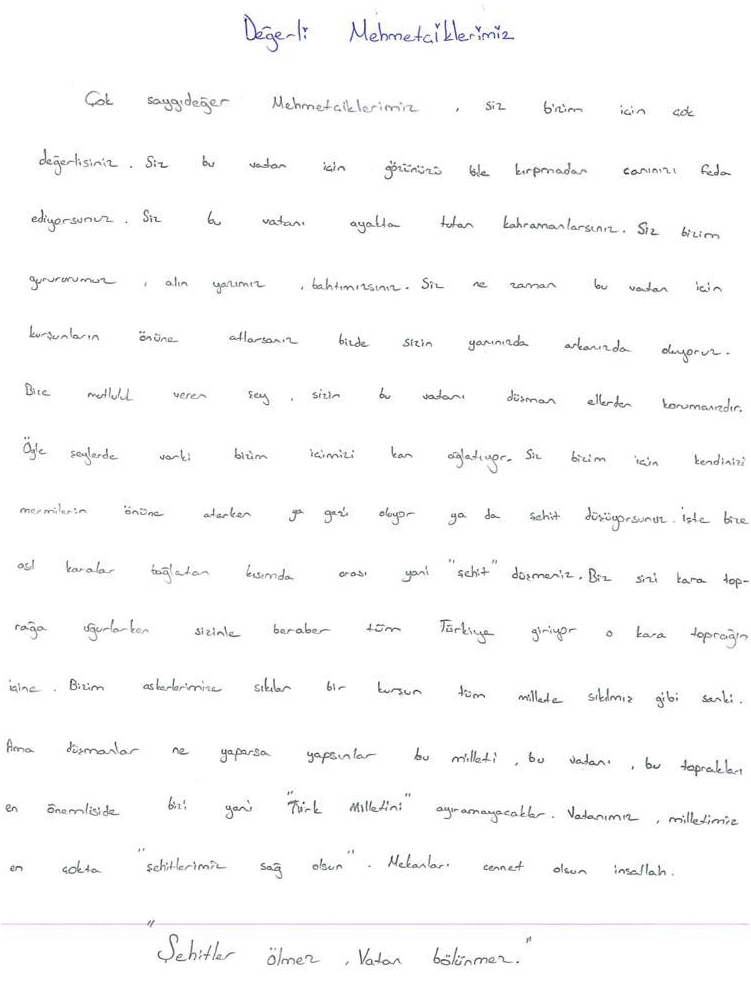 Değerli Mehmetciklerimiz
Çok saygıdeğer Mehmetciklerimiz , siz bizim için çok
değerlisiniz . Siz bu vatan için gözünüzü bile kırpmadan canınızı feda
ediyorsunuz . Siz bu vatanı ayakta tutan kahramanlarsınız. Siz bizim
gurururumuz , alın yazımız , bahtımızsınız. Siz ne zaman bu vatan için
kurşunların önüne atlarsanız bizde sizin yanınızda arkanızda oluyoruz.
Bize mutluluk veren şey , sizin bu vatanı düşman ellerden korumanızdır.
Öyle şeylerde varki bizim içimizi kan ağlatıyor. Siz bizim için kendinizi
mermilerin önüne atarken ya gazi oluyor ya da şehit düşüyorsunuz. İşte bize
asıl karalar bağlatan kısımda orası yani "şehit" düşmeniz. Biz sizi kara top-
rağa uğurlarken sizinle beraber tüm Türkiye giriyor o kara toprağın
içine . Bizim askerlerimize sıkılan bir kurşun tüm millete sıkılmız gibi sanki.
Ama düşmanlar ne yaparsa yapsınlar bu milleti , bu vatanı , bu toprakları
en önemliside bizi yani "Türk Milletini" ayıramayacaklar. Vatanımız , milletimiz
en çokta "şehitlerimiz sağ olsun". Mekanları cennet olsun inşallah.
"Şehitler ölmez , Vatan bölünmez."